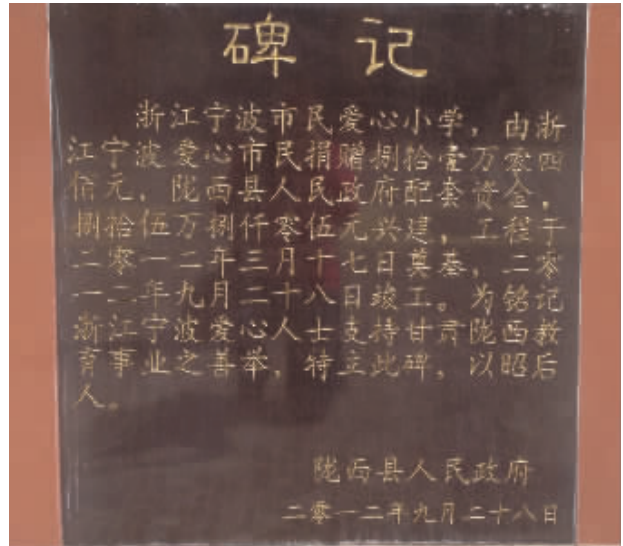 碑 记
浙江宁波市民爱心小学，由浙
江宁波爱心市民捐赠捌拾壹万零四
佰元，陇西县人民政府配套资金，
捌拾伍万捌仟零伍元兴建，工程于
二零一二年三月十七日奠基，二零
一二年九月二十八日竣工。为铭记
浙江宁波爱心人士支持甘肃陇西教
育事业之善举，特立此碑，以昭后
人。
陇西县人民政府
二零一二年九月二十八日